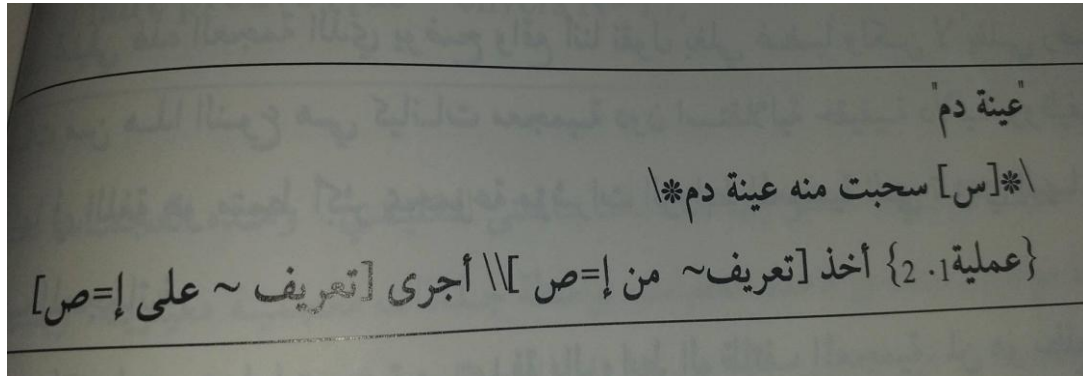 "عينة دم"
\*[س] سحبت منه عينة دم*\
{عملية1. 2} أخذ [تعريف~ من إ=ص ]\\ أجرى [تعريف ~ على إ=ص]